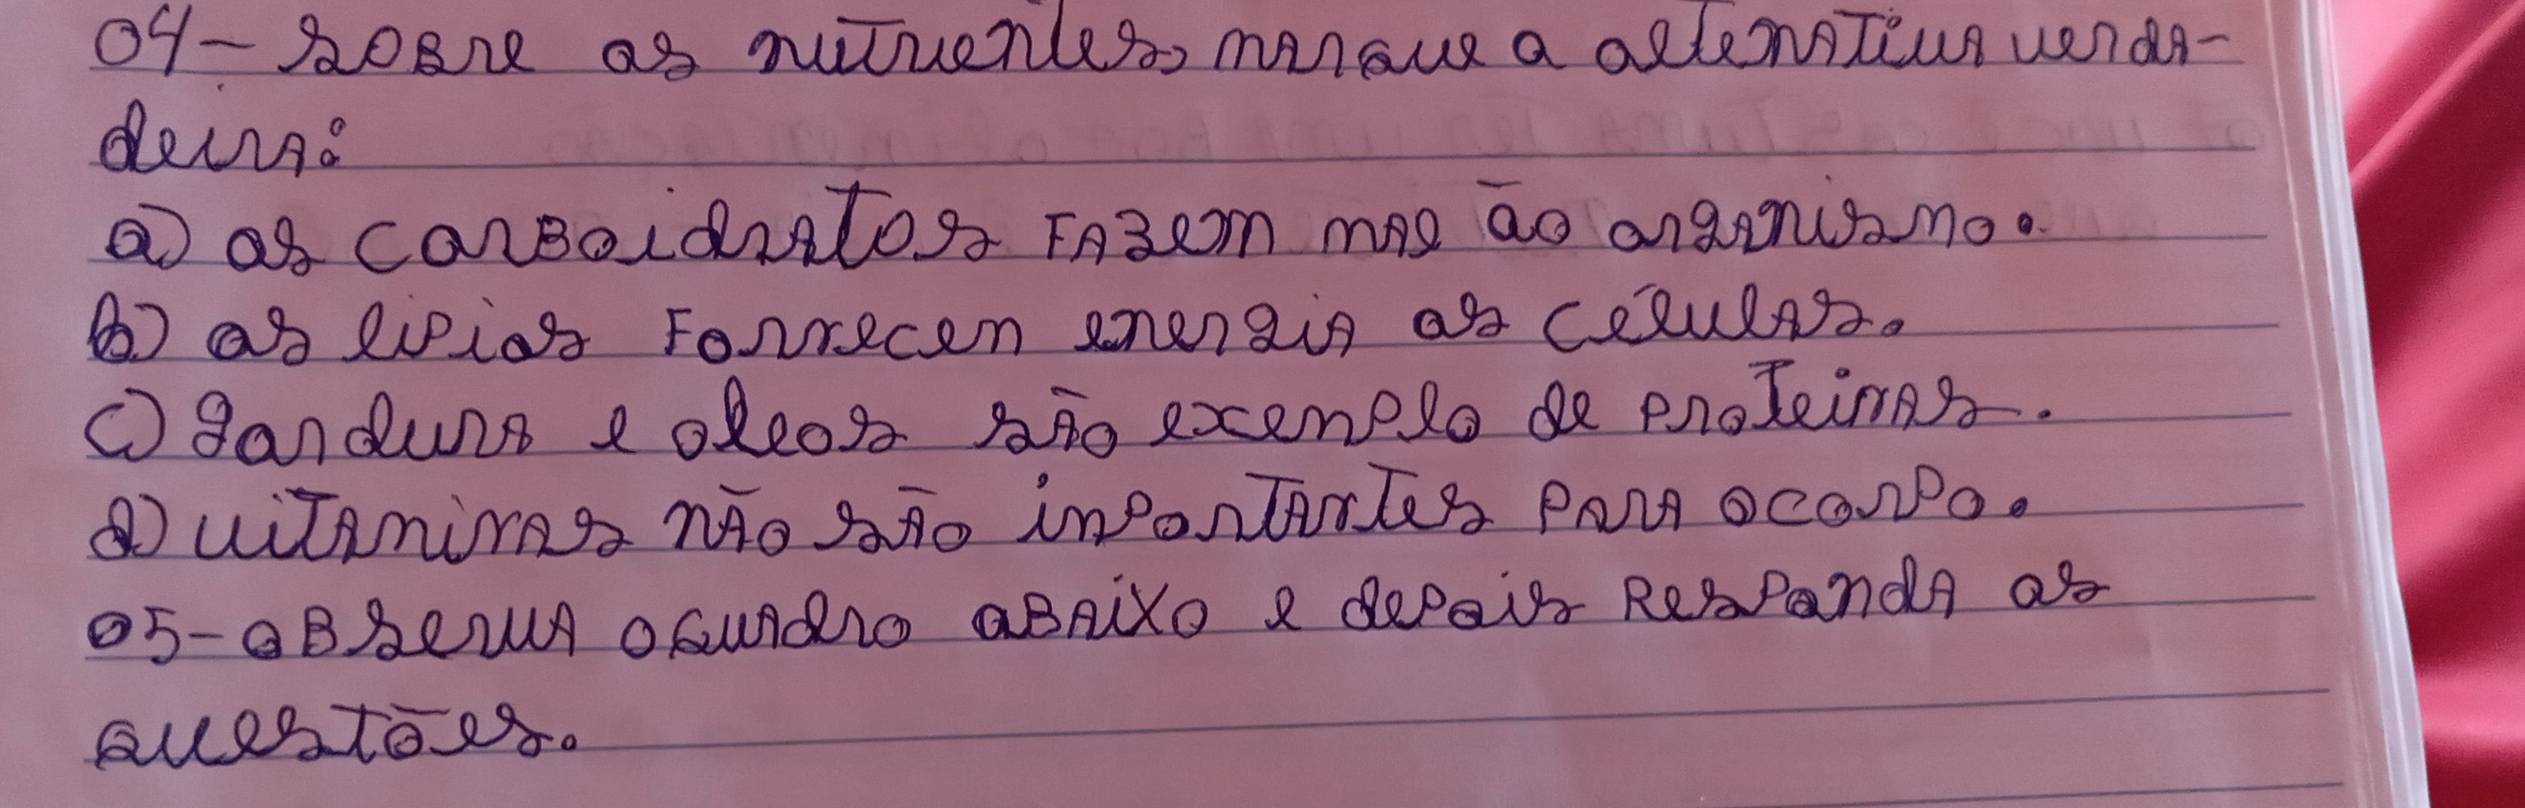 04- sobre os nutrientes, marque a alternativa verda-
deira:
a) os carboidratos fazem mal ão organismo.
b) os lipios fornecen energia as células.
c) gordura e oleos são exenplo de proteinas.
d) vitaminas não são inportantes para o corpo.
05- observa o quadro abaixo e depois responda as
questões.